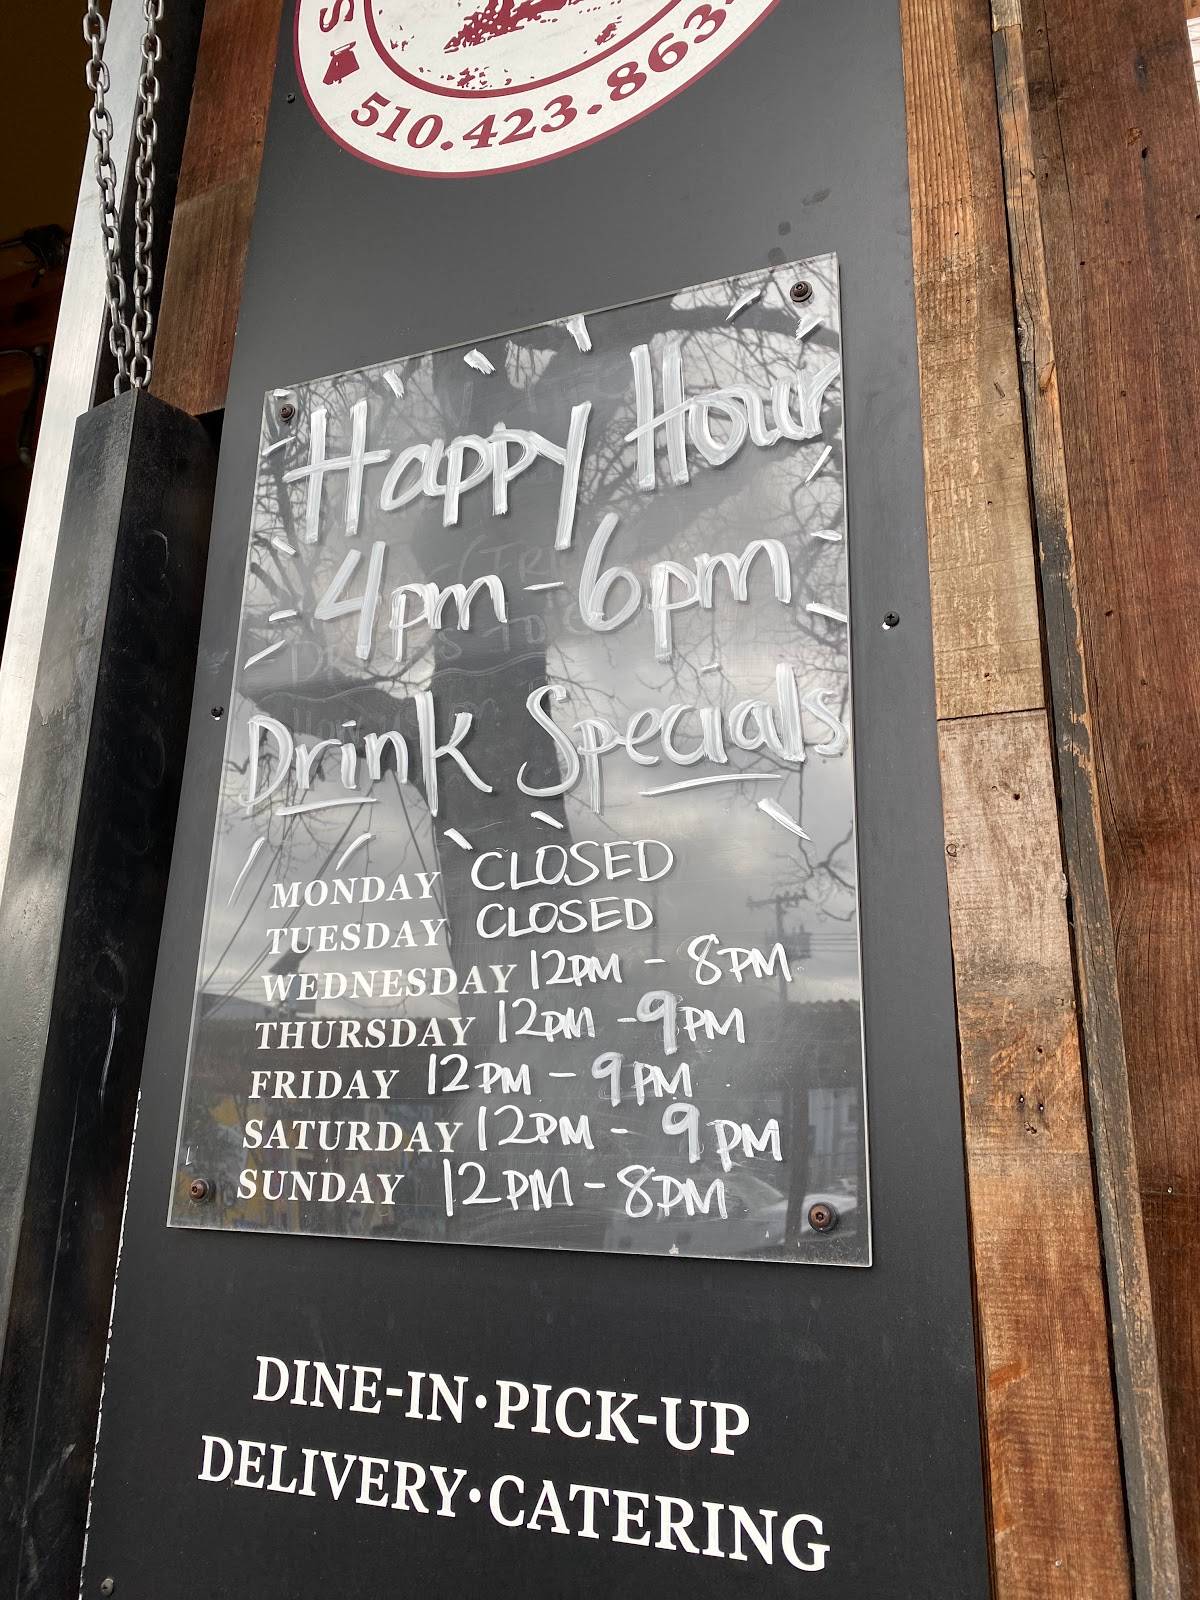 510.423.863
Happy Hour
4pm - 6pm
Drink Specials
MONDAY CLOSED
TUESDAY CLOSED
WEDNESDAY 12PM - 8PM
THURSDAY 12PM - 9PM
FRIDAY 12PM - 9PM
SATURDAY 12PM - 9PM
SUNDAY 12PM - 8PM
DINE-IN·PICK-UP
DELIVERY·CATERING